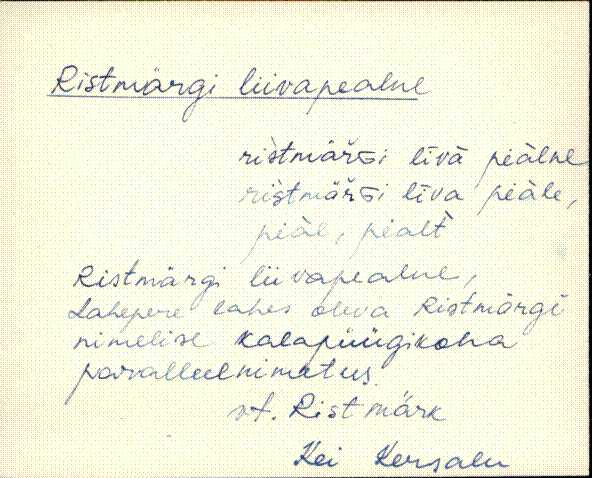 Ristmärgi liivapealne
ristmärGi līva peälne
ristmärGi līva peäle,
peäl, pealt
Ristmärgi liivapealne,
Lahepere lahes oleva Ristmärgi
nimelise kalapüügikoha
paralleelnimetus.
vt. Ristmärk
Kei Kersalu